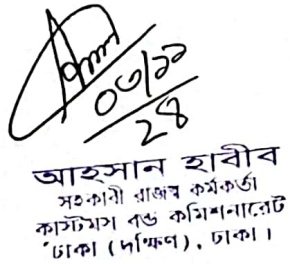 ০৩/১১
২৪
আহসান হাবীব
সহকারী রাজস্ব কর্মকর্তা
কাস্টমস বন্ড কমিশনারেট
ঢাকা (দক্ষিণ), ঢাকা।